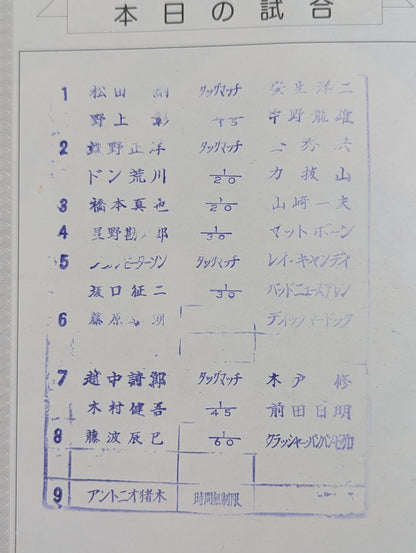 本日の試合
1 松田 納 タッグマッチ 安生洋二
野上 彰 1/15 中野龍雄
2 蝶野正洋 タッグマッチ 秀
ドン荒川 1/20 力抜山
3 橋本真也 1/20 山崎一夫
4 星野勘 郎 1/30 マットボーン
5 ピーターソン タッグマッチ レイ・キャンディ
坂口征二 1/30 バッドニュースアレン
6 藤原
7 越中詩郎 タッグマッチ 木戸 修
木村健吾 1/45 前田日明
8 藤波辰巳 1/60 クラッシャーバンバンビガロ
9 アントニオ猪木 時間無制限